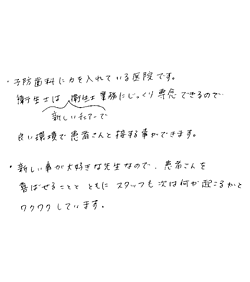 ・予防歯科に力を入れている医院です。
衛生士は 衛生士業務にじっくり専念できるので
新しい
良い環境で患者さんと接する事ができます。
・新しい事が大好きな先生なので、患者さんを
喜ばせることと ともに スタッフも次は何が起こるかと
ワクワクしています。